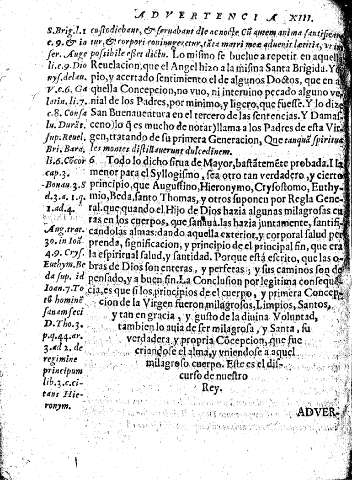 ADVERTENCIA XIII.
S. Brig. l. 1
c. 9. & in
ser. Ange
li. c. 9. Dio
nys. de lau.
V. c. 6. Ga
latin. li. 7.
c. 8. Consa
Sũ. Durãt.
Sup. Reuel.
Bri. Bara.
li. 6. Cõcor
cap. 3.
Bonau. 3. S
d. 3. a. 1. q.
1. ad. 4.
Aug. trac.
30. in Ioã
4. 9. Crys.
Euthym. Be
da sup. id
Ioan. 7. To
tũ hominẽ
sanum feci
D. Tho. 3.
p. q. 44. ar.
3. ad 2. de
regimine
principum
lib. 3. c. ci-
tans Hie-
ronym.
custodiebant, & seruabant die ac nocte. Cũ autem anima sanctificare
tur, & corpori coniungeretur, tãta matri meæ aduenit lætitia, vt im
possibile esset dictu. Lo mismo se buelue a repetir en aquella
Reuelacion, que el Angel hizo a la misma Santa Brigida. Y pro
pio, y acertado sentimiento el de algunos Doctos, que en a-
quella Concepcion, no vuo, ni interuino pecado alguno ve-
nial de los Padres, por minimo, y ligero, que fuesse. Y lo dize
San Buenauentura en el tercero de las sentencias. Y Damas-
ceno (lo q̃ es mucho de notar) llama a los Padres de esta Vir
gen, tratando de su primera Generacion, Que tanquã spiritua
les montes distillauerunt dulcedinem.
6 Todo lo dicho sirua de Mayor, bastãtemẽte probada. I la
menor para el Syllogismo, sea otro tan verdadero, y cierto
principio, que Augustino, Hieronymo, Crysostomo, Euthy-
mio, Beda, santo Thomas, y otros suponen por Regla Gene-
ral. que quando el Hijo de Dios hazia algunas milagrosas cu
ras en los cuerpos, que sanaua, las hazia juntamente, santifi-
candolas almas: dando en aquella exterior, y corporal salud per
prenda, significacion, y principio de el principal fin, que era
la espiritual salud, y santidad. Porque està escrito, que las o-
bras de Dios son enteras, y perfetas; y sus caminos son de
pensado, y a buen fin. La Conclusion por legitima consequẽ
cia, es que si los principios de el cuerpo, y primera Concep-
cion de la Virgen fueron, milagrosos, Limpios, Santos,
y tan en gracia, y gusto de la diuina Voluntad,
tambien lo auia de ser milagrosa, y Santa, su
verdadera y propria Cõcepcion, que fue
criandose el alma, y vniendose a aquel
milagroso cuerpo. Este es el dis-
curso de nuestro
Rey.
ADVER-